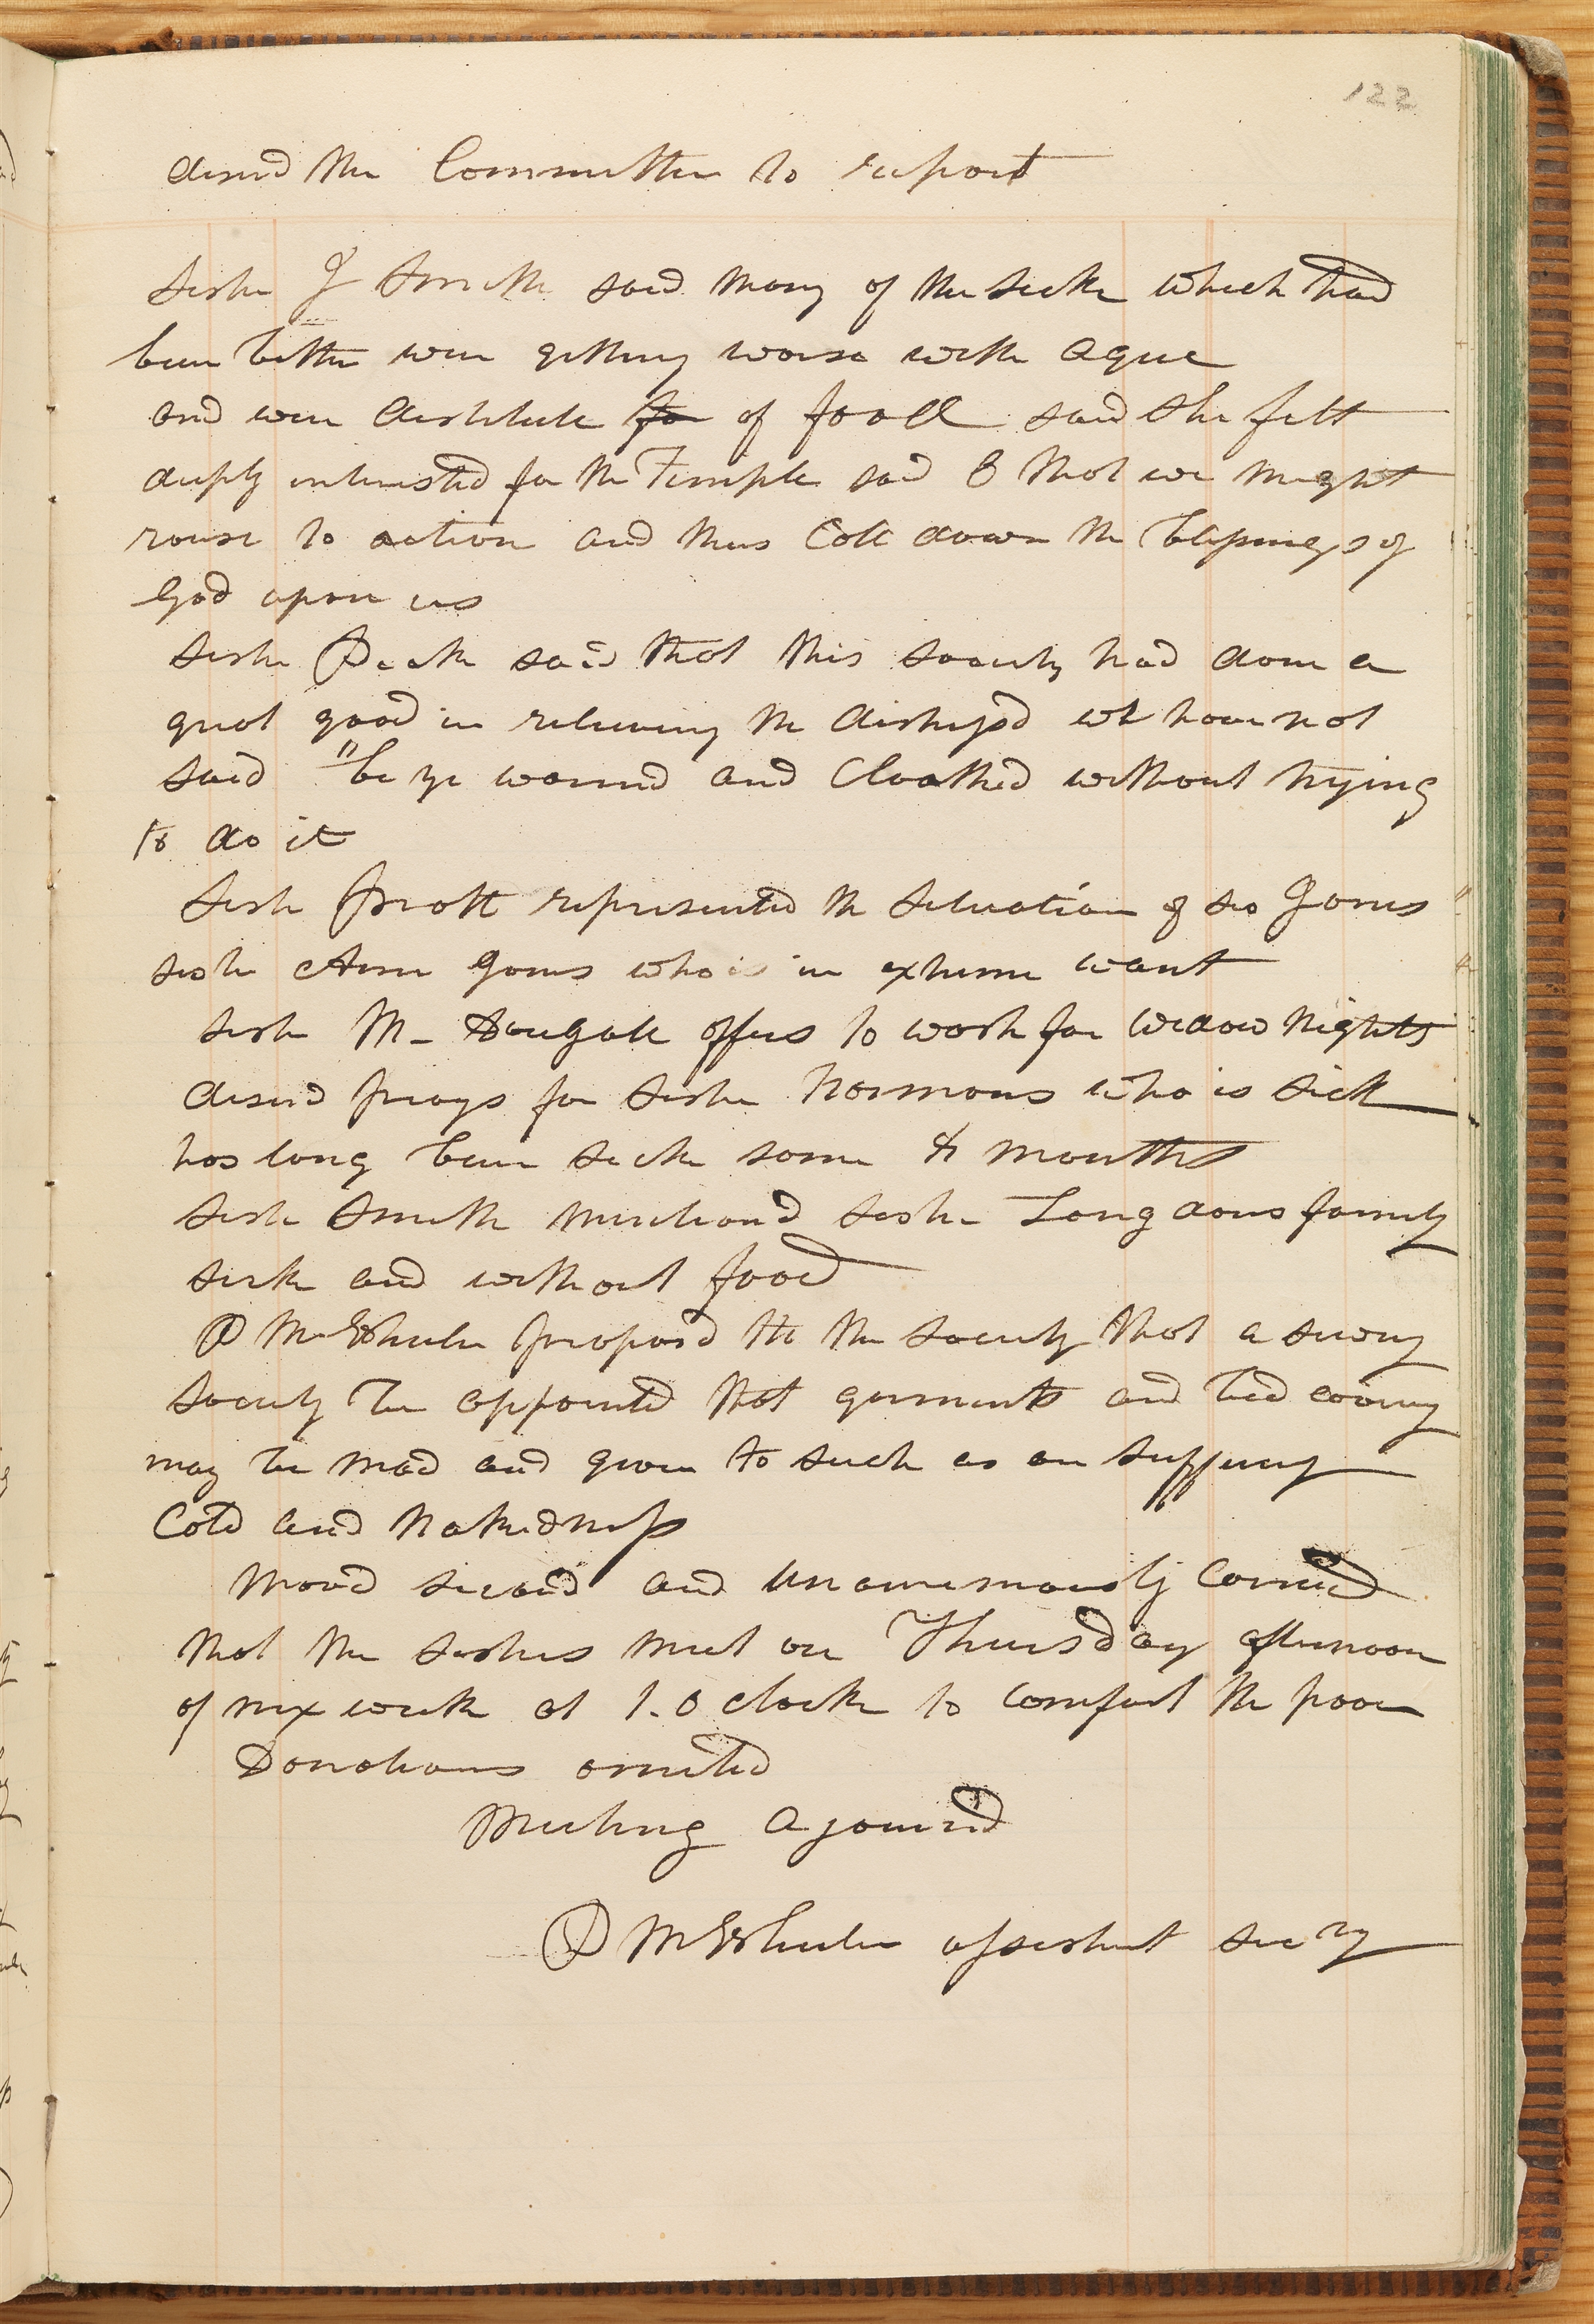 122
desired the Committee to report
Sister J Smith said many of the sick which had
been better were getting worse with ague
and were destitute for of food said she felt
deeply interested for the Temple said O that we might
rouse to action and thus Call down the blessings of
God upon us
Sister Peck said that this society had done a
great good in relieving the distressd we have not
said "be ye warmd and Cloathed without trying
to do it
Sister Pratt represented the Situation of sis Jones
sister Ann Jones who is in extreme want
sister M- Dougall offers to work for widow Nights
desired prays for sister Normons who is sick
has long been sick some 8 months
sister Smith mentiond sister Longdons family
sick and without food
P M Wheeler proposd to the society that a sewing
society be appointed that garments and bed covring
may be mad and given to such as are suffering
Cold and Nakedness
Movd secand and Unanemously Carried
that the sisters meet on Thursday afternoon
of nex week at 1.O clock to comfort the poor
Donations omited
Meeting ajournd
P M Wheeler assistent secry